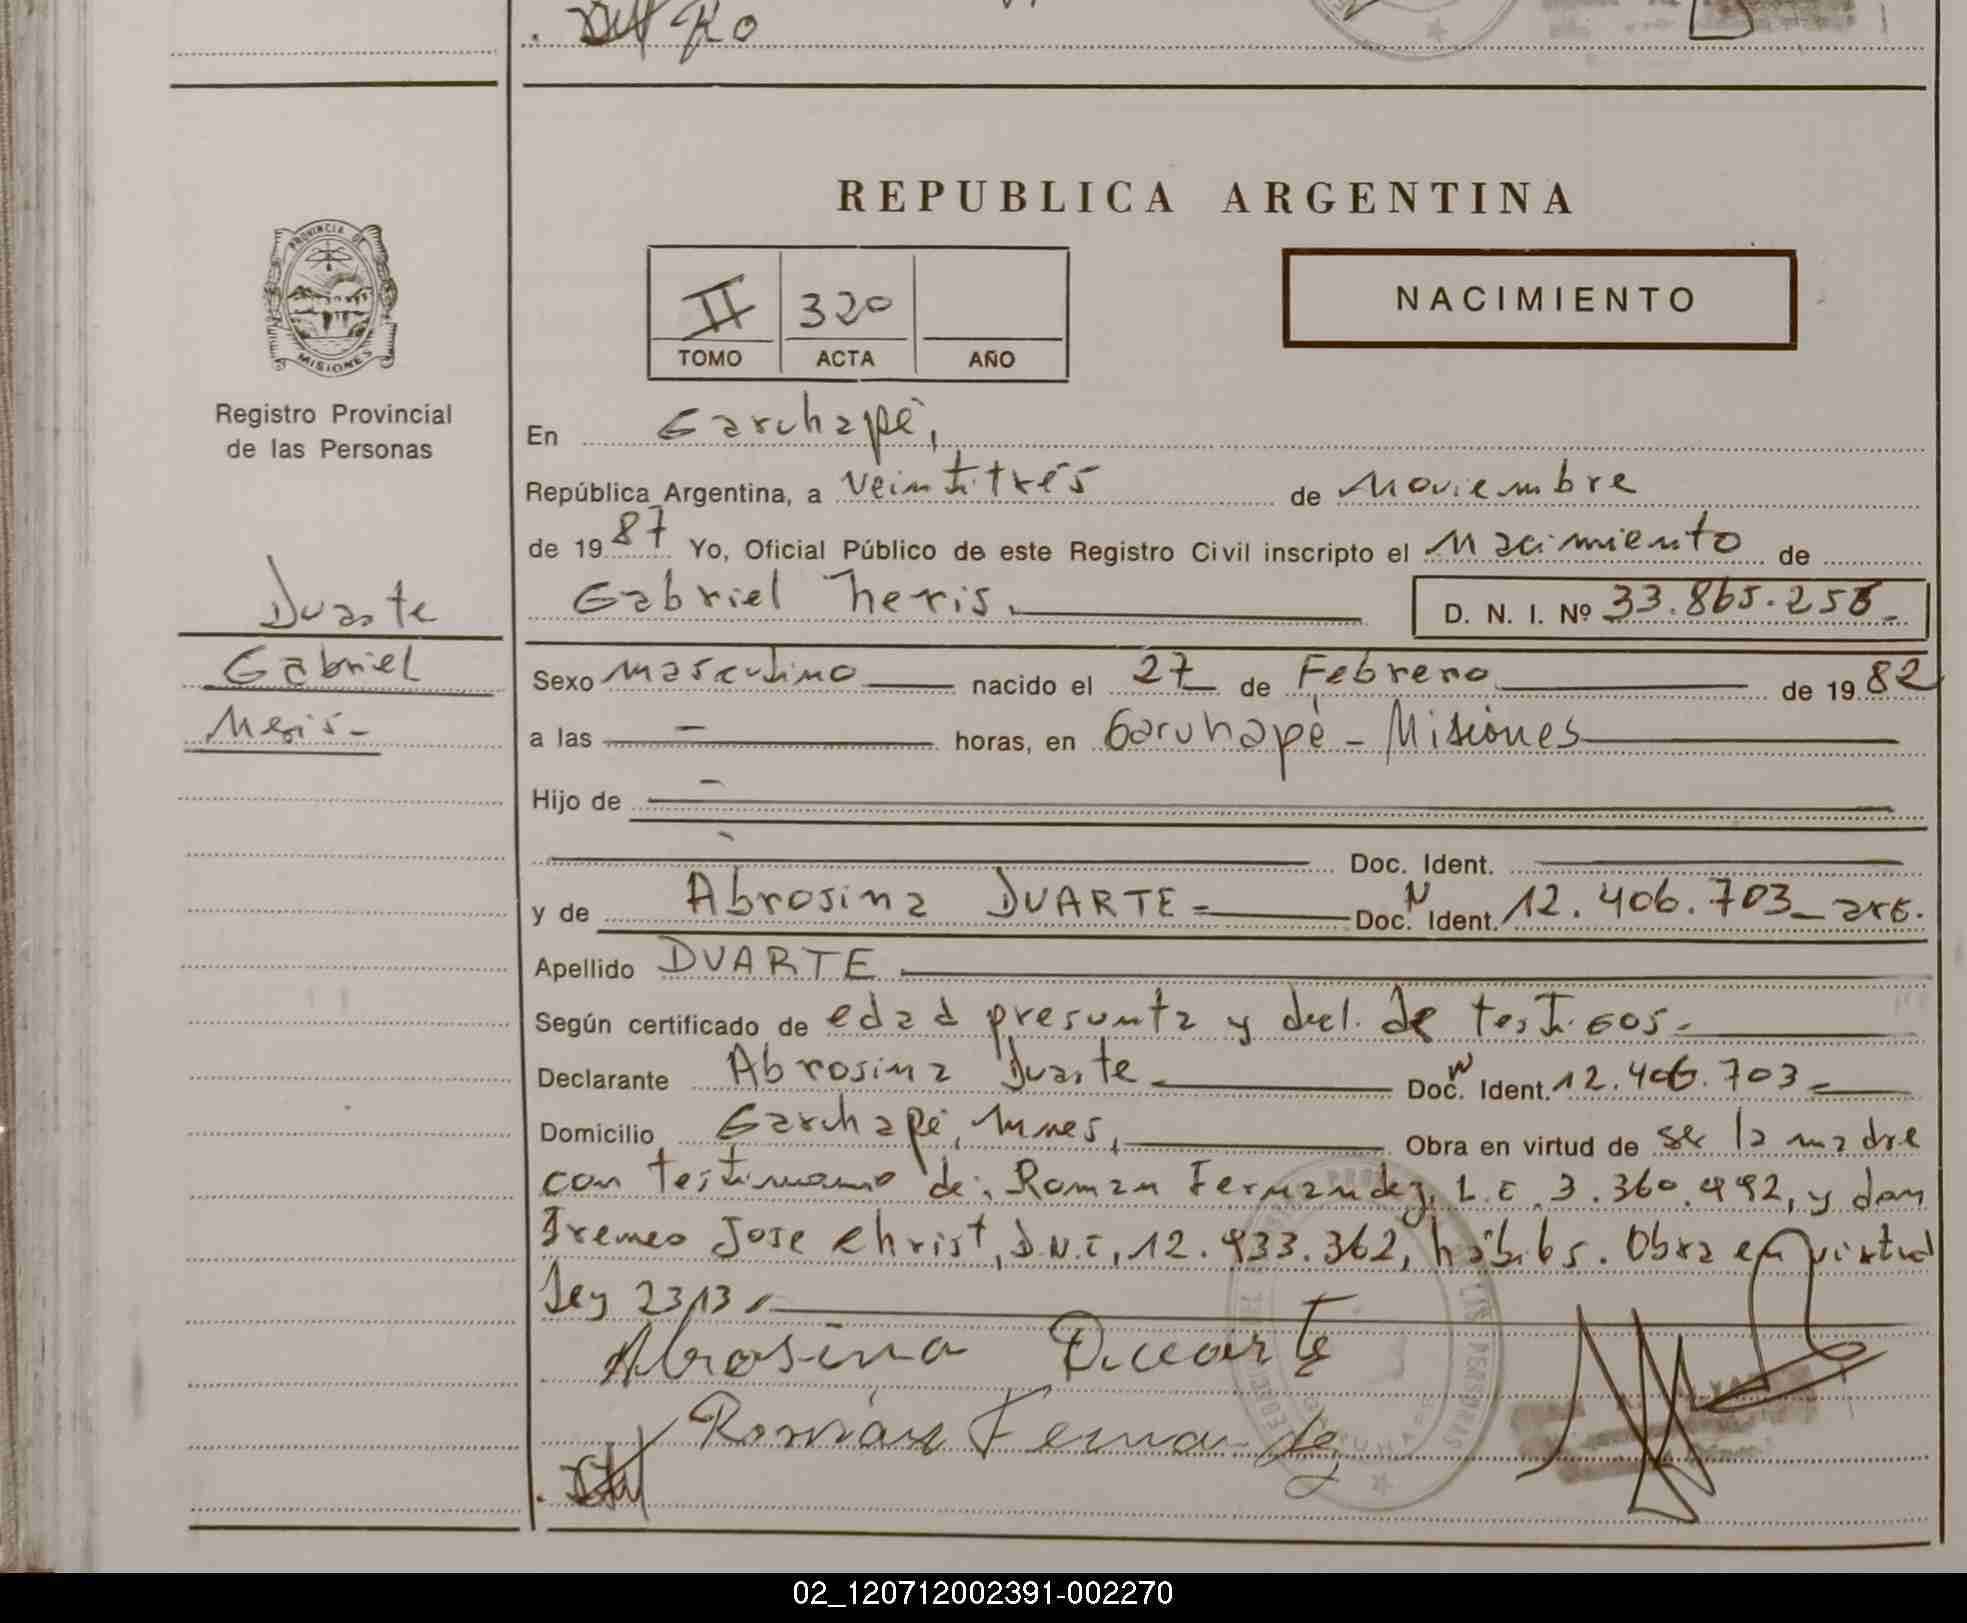 REPUBLICA ARGENTINA
PROVINCIA DE
MISIONES
Registro Provincial
de las Personas
II 320
TOMO ACTA AÑO
NACIMIENTO
En Garuhapé,
República Argentina, a veintitrés de Noviembre
de 1987 Yo, Oficial Público de este Registro Civil inscripto el Nacimiento de
Gabriel Neris. D. N. I. Nº 33.865.256
Duarte
Gabriel
Neris
Sexo masculino nacido el 27 de Febrero de 1982
a las — horas, en Garuhapé - Misiones
Hijo de —
Doc. Ident.
y de Abrosina DUARTE Doc. Ident. 12.406.703 - arg.
Apellido DUARTE
Según certificado de edad presunta y decl. de testigos.
Declarante Abrosina Duarte Doc. Ident. 12.406.703
Domicilio Garuhapé, Mnes, Obra en virtud de ser la madre
con testimonio de: Roman Fernandez, L.E. 3.360.992, y don
Ireneo Jose Christ, D.N.I, 12.933.362, hábiles. Obra en virtud
Ley 2313
Abrosina Duarte
Román Fernandez
02_120712002391-002270